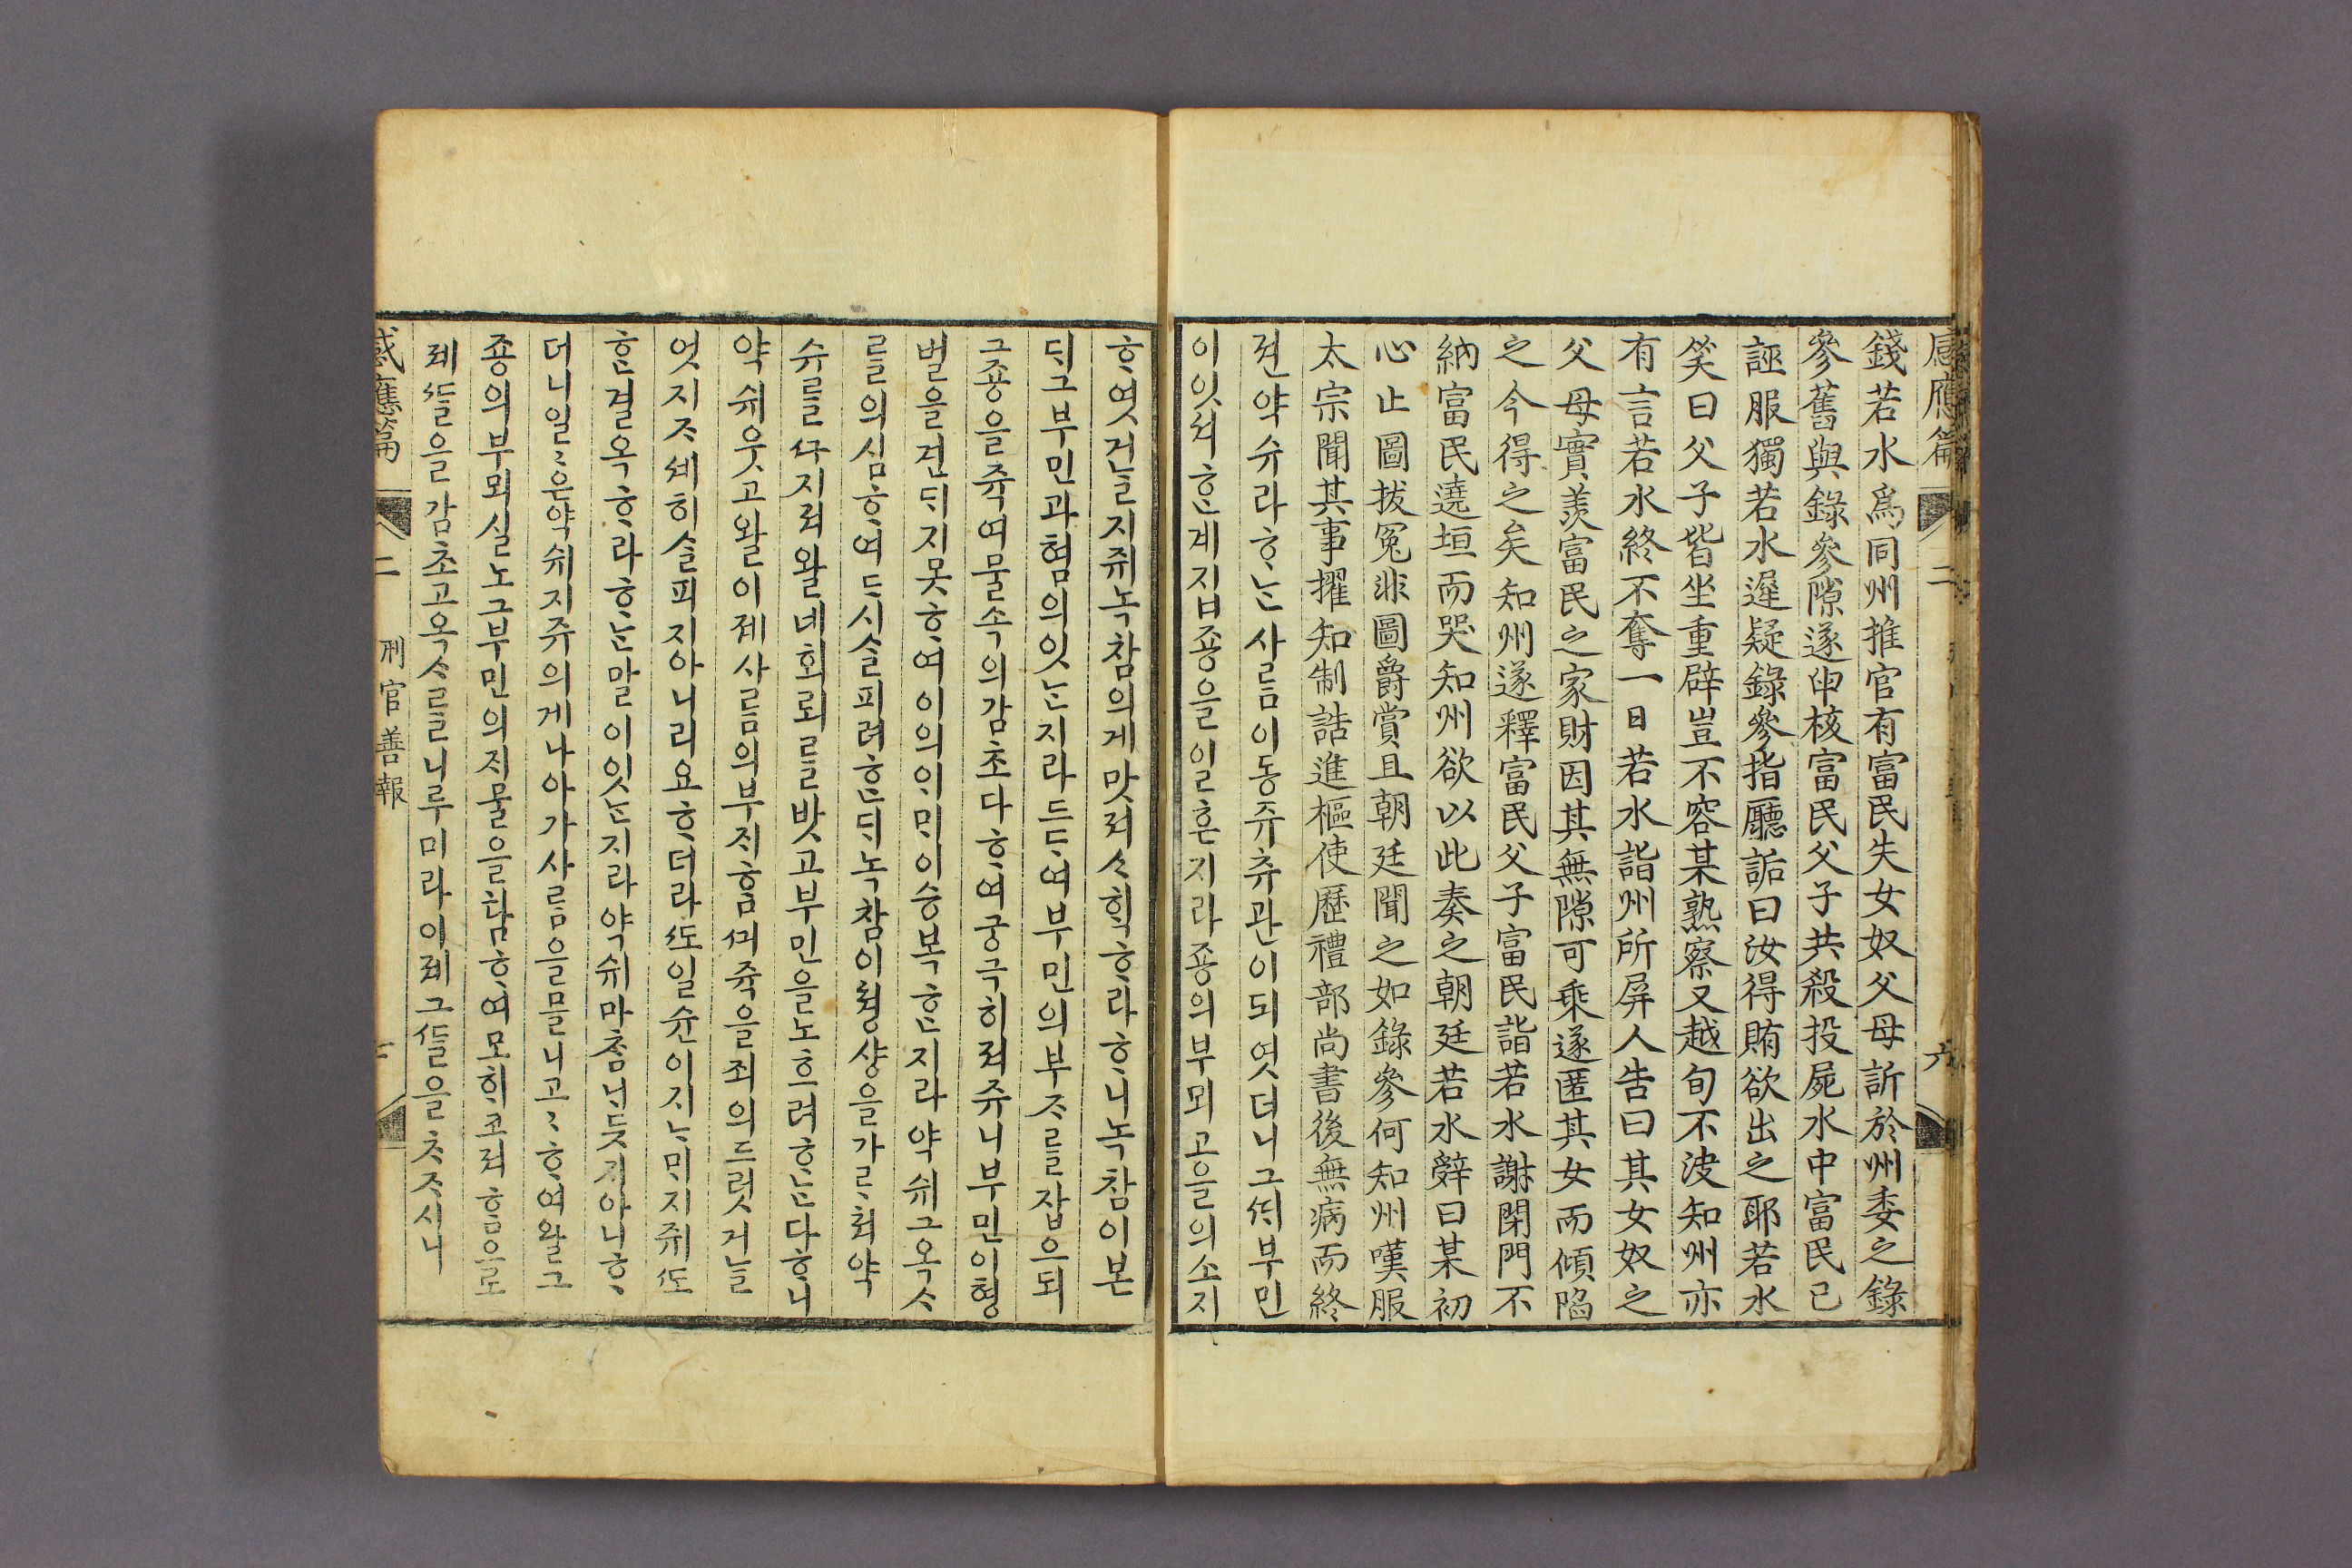 感應篇 二 六
錢若水爲同州推官有富民失女奴父母訢於州委之錄
參舊與錄參隙遂申核富民父子共殺投屍水中富民已
誣服獨若水遲疑錄參指廳詬曰汝得賄欲出之耶若水
笑曰父子皆坐重辟豈不容某熟察又越旬不決知州亦
有言若水終不奪一日若水詣州所屛人告曰其女奴之
父母實羨富民之家財因其無隙可乘遂匿其女而傾陷
之今得之矣知州遂釋富民父子富民詣若水謝閉門不
納富民遶垣而哭知州欲以此奏之朝廷若水辭曰某初
心止圖拔冤非圖爵賞且朝廷聞之如錄參何知州嘆服
太宗聞其事擢知制誥進樞使歷禮部尙書後無病而終
젼약슈라ᄒᆞᄂᆞᆫ사ᄅᆞᆷ이동쥬츄관이되엿더니그ᄯᅢ부민
이잇셔ᄒᆞᆫ계집죵을일흔지라죵의부뫼고을의소지
ᄒᆞ엿거ᄂᆞᆯ지쥐녹참의게맛져ᄉᆞ획ᄒᆞ라ᄒᆞ니녹참이본
ᄃᆡ그부민과혐의잇ᄂᆞᆫ지라드ᄃᆡ여부민의부ᄌᆞᄅᆞᆯ잡으되
그죵을쥭여물속의감초다ᄒᆞ여궁극히져쥬니부민이형
벌을견ᄃᆡ지못ᄒᆞ여이의이ᄆᆡ이승복ᄒᆞᆫ지라약쉬그옥ᄉᆞ
ᄅᆞᆯ의심ᄒᆞ여ᄃᆞ시ᄉᆞᆯ피려ᄒᆞᆫᄃᆡ녹참이쳥샹을가ᄅᆞ쳐약
슈ᄅᆞᆯᄭᅮ지져왈네회뢰ᄅᆞᆯ밧고부민을노흐려ᄒᆞᄂᆞᆫ다ᄒᆞ니
약쉬웃고왈이졔사ᄅᆞᆷ의부ᄌᆡᄒᆞᆷᄭᅴ쥭을죄의드럿거ᄂᆞᆯ
엇지ᄌᆞ셰히ᄉᆞᆯ피지아니리요ᄒᆞ더라ᄯᅩ일슌이지ᄂᆞᄆᆡ지쥐ᄯᅩ
ᄒᆞᆫ결옥ᄒᆞ라ᄒᆞᄂᆞᆫ말이잇ᄂᆞᆫ지라약쉬마ᄎᆞᆷᄂᆡ듯지아니ᄒᆞ
더니일〻은약쉬지쥬의게나아가사ᄅᆞᆷ을믈니고〻ᄒᆞ여왈그
죵의부뫼실노그부민의ᄌᆡ물을탐ᄒᆞ여모ᄒᆡ코져ᄒᆞᆷ으로
졔ᄯᆞᆯ을감초고옥ᄉᆞᄅᆞᆯ니루미라이졔그ᄯᆞᆯ을ᄎᆞᄌᆞ시니
感應篇 二 刑官善報 七